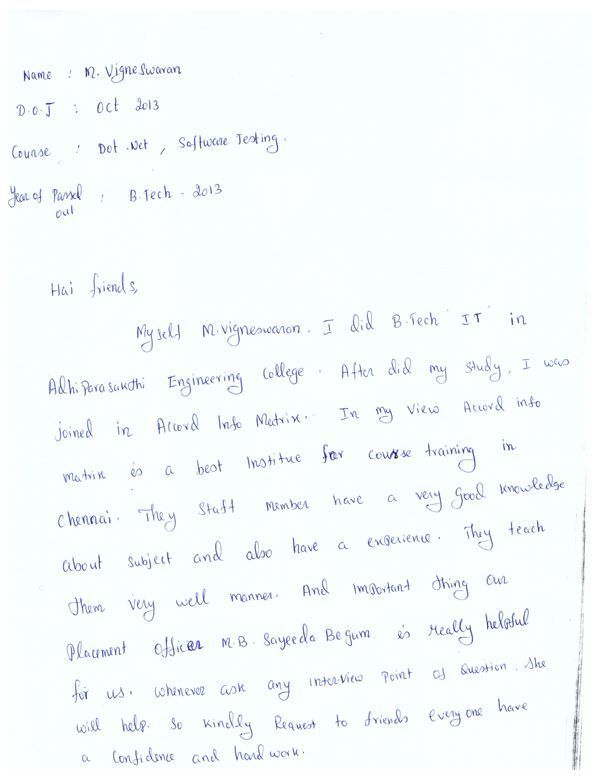 Name : M. Vigneswaran
D.O.J : Oct 2013
Course : Dot .Net , Software Testing.
Year of Passed : B.Tech - 2013
out
Hai friends,
Myself M.Vigneswaran. I did B.Tech 'IT' in
Adhiparasakthi Engineering College. After did my study, I was
joined in Accord Info Matrix. In my view Accord info
matrix is a best Institue for course training in
Chennai. They Staff Member have a very good knowledge
about subject and also have a experience. They teach
them very well manner. And Important thing our
Placement Officer M.B. Sayeeda Begum is really helpful
for us. Whenever ask any interview Point of Question. She
will help. So kindly Request to friends everyone have
a Confidence and hard work.